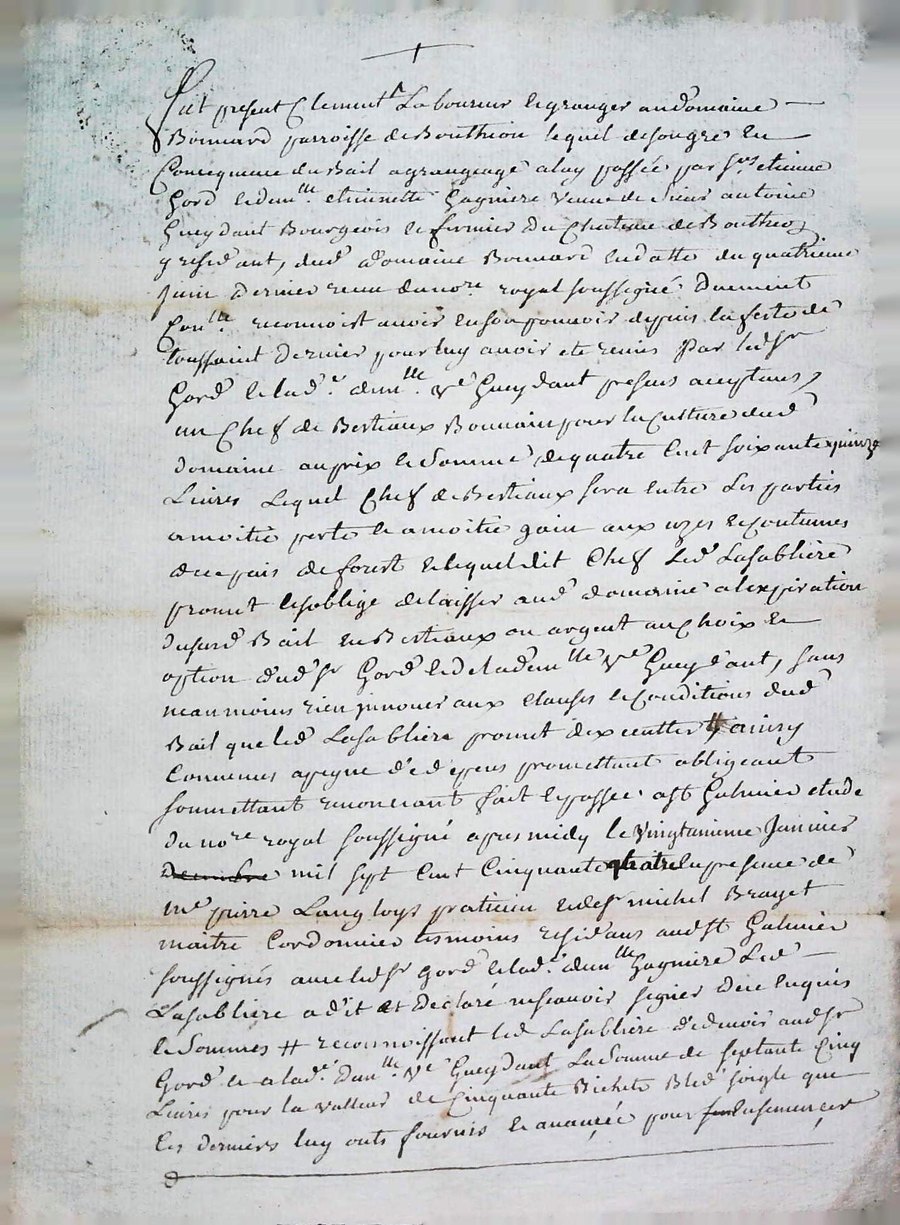 Fut present Clement Laboureur et granger au domaine
Bonnard parroisse de Bouthéon lequel de son gré en
Consequence du Bail a grangeage a luy passée par Srs etienne
Gord et dem.lle etiennette Gagniere veuve de Sieur antoine
Gueydant Bourgeois et fermier du Chateau de Bouthéon
y residant, dud domaine Bonnard en datte du quatrieme
Juin dernier recu du no.re royal soussigné duement
Con.llé reconnoist avoir en son pouvoir depuis la feste de
toussaint dernier pour luy avoir eté remis par led Sr
Gord et lad.e dem.lle ve Gueydant presens acceptans,
un Chef de Bestiaux Bonnain pour la Culture dud
domaine au prix et Somme de quatre cent soixante quinze
Livres Lequel Chef de Bestiaux sera entre les parties
a moitié perte et a moitié gain aux uzes et Coutumes
de ce païs de forest et lequel dit Chef led Lasabliere
promet et soblige de laisser aud domaine a lexpiration
dusud Bail en Bestiaux ou argent au Choix et
option dud Sr Gord et de lad dem.lle ve Gueydant, sans
neanmoins rien innover aux clauses et Conditions dud
Bail que led Lasabliere promet dexecutter # ainsy
Convenus a peyne d'ed depens promettant obligeant
soumettant renonciant fait et passé a St Galmier etude
du no.re royal soussigné apres midy le vingtunieme Janvier
Decembre mil sept Cent Cinquante quatre en presence de
me pierre Langloys praticien et de Sr michel Brayet
maitre Cordonnier tesmoins residans aud St Galmier
soussignés avec led Sr Gord et lad.e dem.lle Gagniere Led
Lasabliere a dit et declaré ne scavoir signer de ce enquis
et Sommés # reconnoissant led Lasabliere d'edevoir aud Sr
Gord et a lad.e dem.lle ve Gueydant La Somme de septante Cinq
Livres pour la valleur de Cinquante Bichets Bled soigle que
les derniers luy onts fournis et avancée pour ensemencer